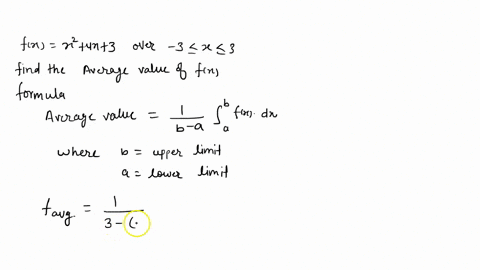 f(x) = x²+4x+3 over -3 ≤ x ≤ 3
find the Average value of f(x)
formula
Average value = 1/(b-a) ∫_a^b f(x) dx
where b = upper limit
a = lower limit
f_avg = 1/(3-(